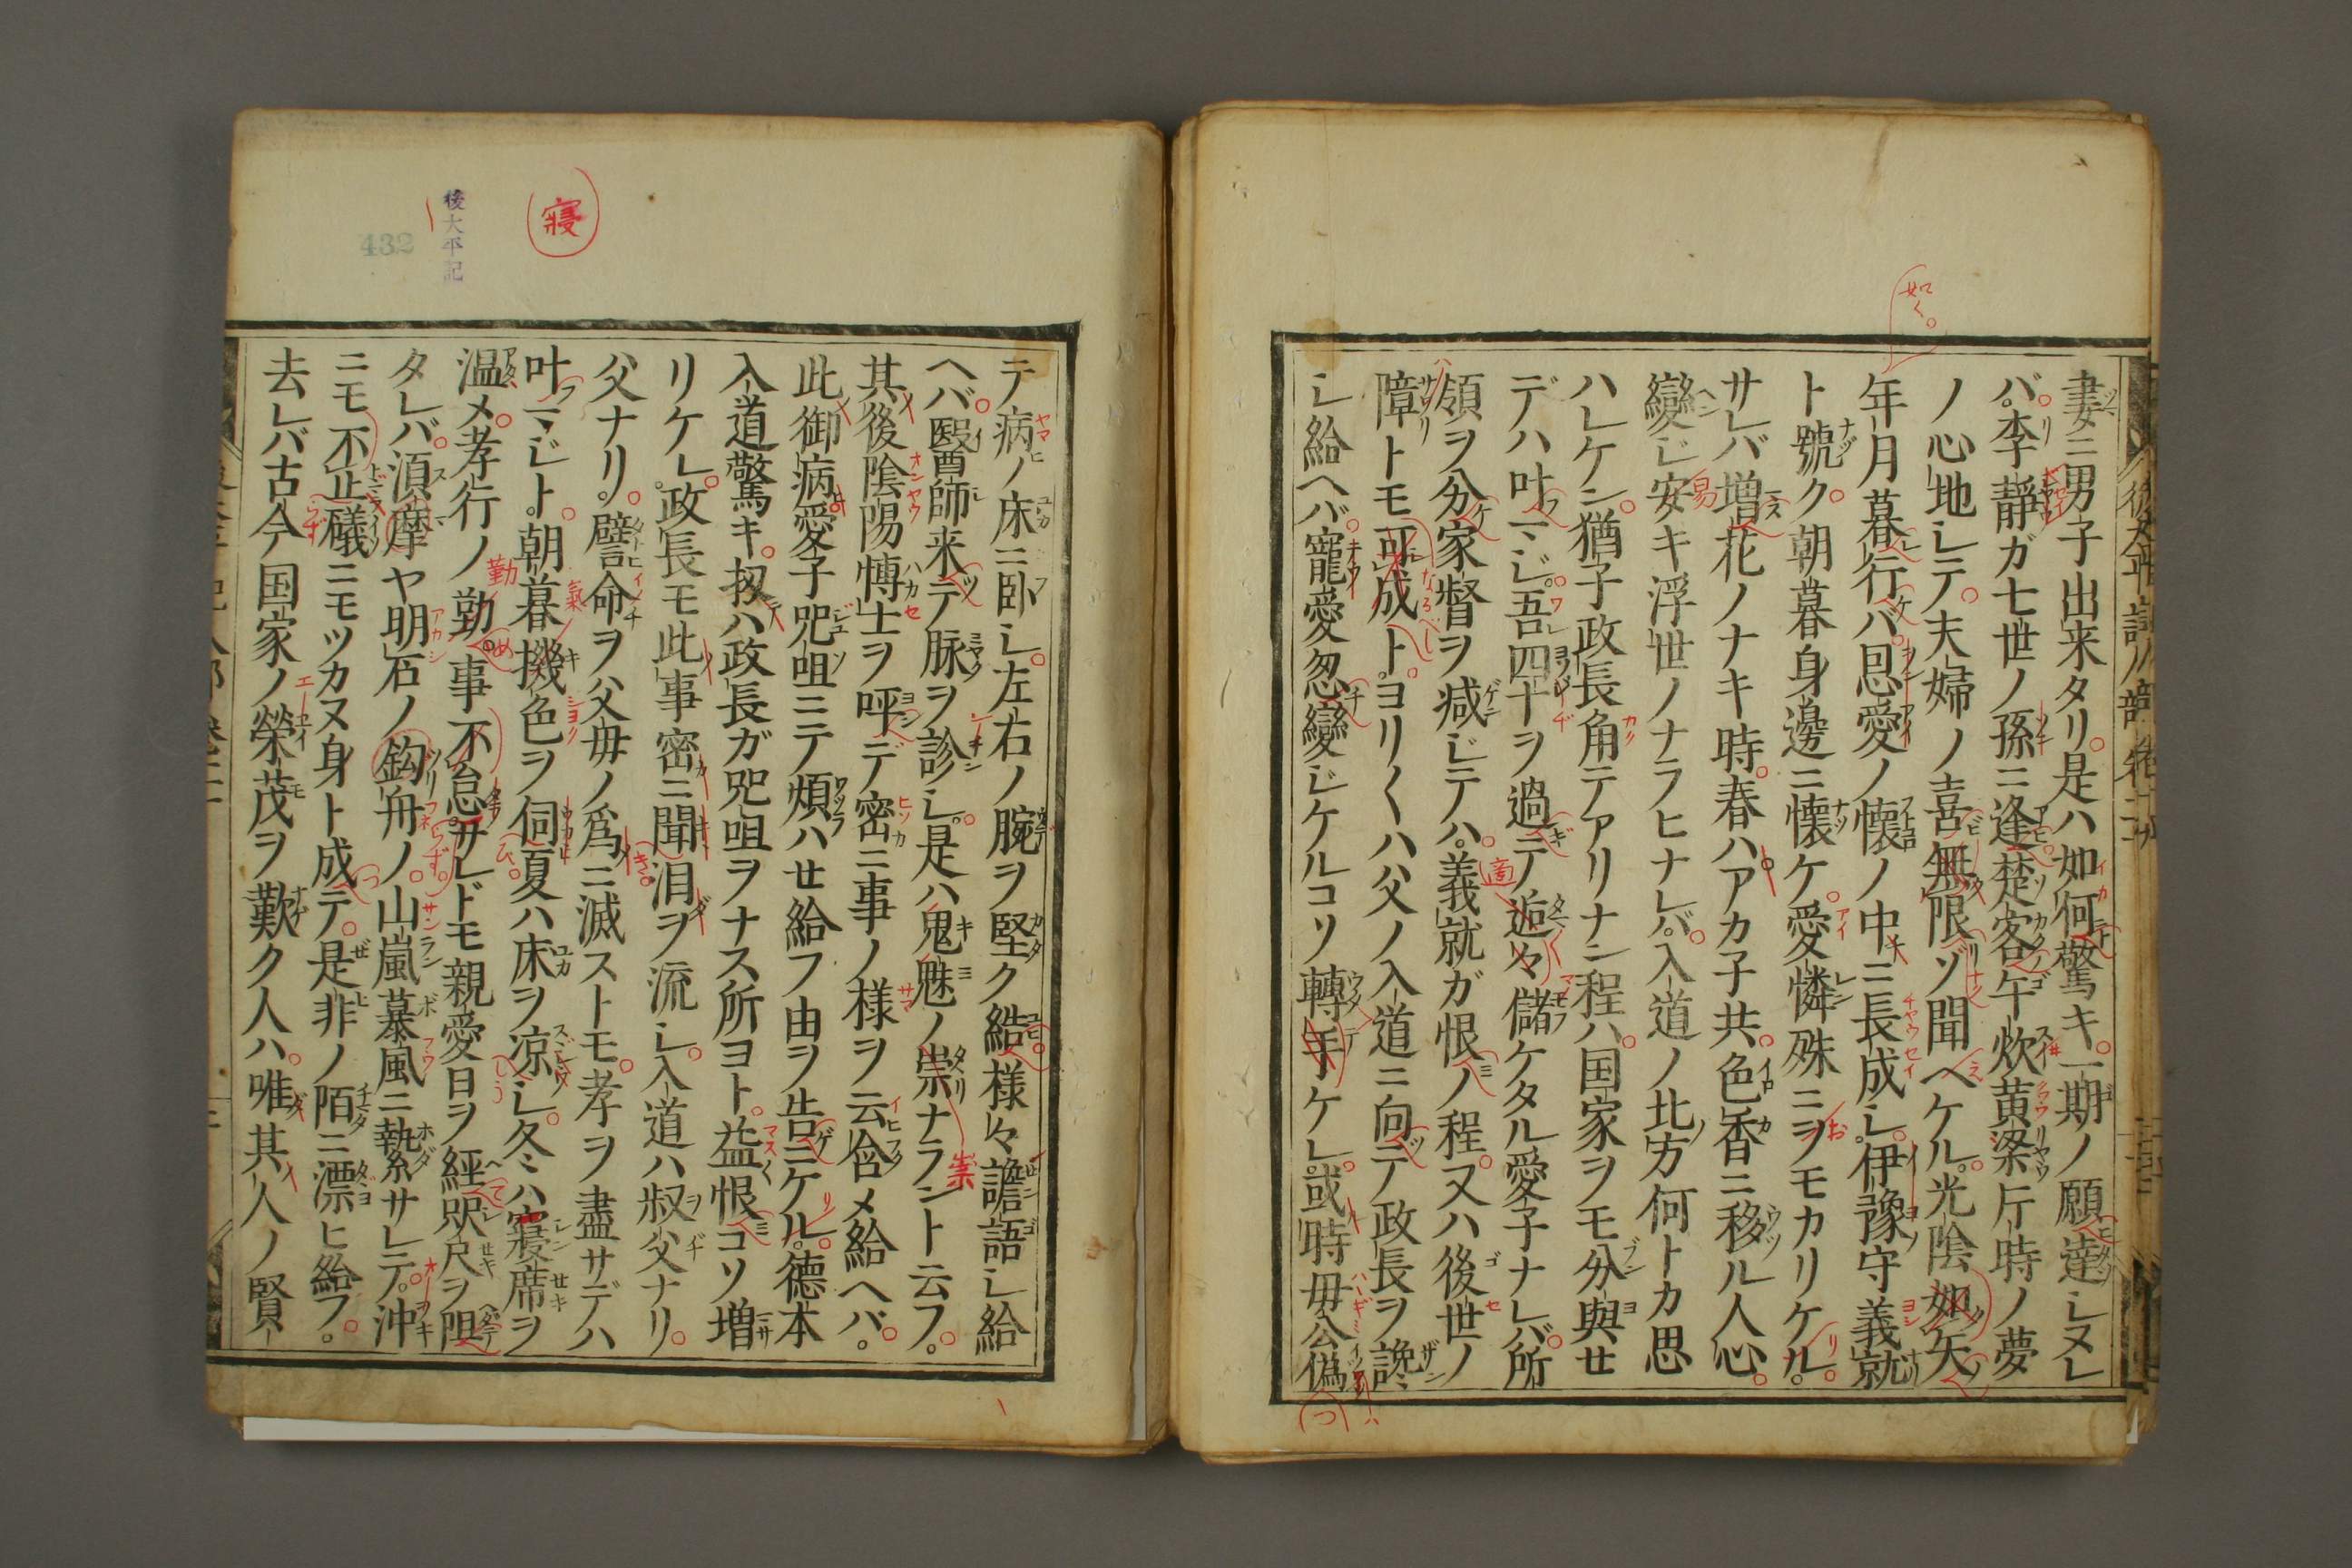 妻ニ男子出来タリ是ハ如何驚キ一期ノ願達シヌレ
バ李靜ガ七世ノ孫ニ逢楚客午炊黄粱斤時ノ夢
ノ心地シテ夫婦ノ喜無限ゾ聞ヘケル光陰如矢
年月暮行バ恩愛ノ懐ノ中ニ長成シ伊豫守義就
ト號ク朝暮身邊ニ懐ケ愛憐殊ニヲモカリケル
サレバ増花ノナキ時春ハアカ子共色香ニ移ル人心
變ジ安キ浮世ノナラヒナレバ入道ノ北方何トカ思
ハレケン猶子政長角テアリナン程ハ国家ヲモ分與セ
デハ叶マジ吾四十ヲ過テ逅々儲ケタル愛子ナレバ所
領ヲ分家督ヲ减ジテハ義就ガ恨ノ程又ハ後世ノ
障トモ可成トヨリ〱ハ父ノ入道ニ向テ政長ヲ讒
シ給ヘバ寵愛忽變ジケルコソ轉手ケレ或時母公偽
テ病ノ床ニ卧シ左右ノ腕ヲ堅ク結様々譫語シ給
ヘバ醫師来テ脉ヲ診シ是ハ鬼魅ノ崇ナラント云フ
其後陰陽博士ヲ呼デ密ニ事ノ様ヲ云含メ給ヘバ
此御病愛子咒咀ニテ煩ハセ給フ由ヲ告ニケル德本
入道驚キ扨ハ政長ガ咒咀ヲナス所ヨト益恨コソ増
リケレ政長モ此事密ニ聞泪ヲ流シ入道ハ叔父ナリ
父ナリ譬命ヲ父母ノ爲ニ滅ストモ孝ヲ盡サデハ
叶マジト朝暮機色ヲ伺夏ハ床ヲ凉シ冬ハ寢席ヲ
温メ孝行ノ勤事不怠サレドモ親愛日ヲ經咫尺ヲ阻
タレバ湏摩ヤ明石ノ鈎舟ノ山嵐暴風ニ執糸サレテ沖
ニモ不止礒ニモツカヌ身ト成テ是非ノ陌ニ漂ヒ給フ
去レバ古今国家ノ榮茂ヲ歎ク人ハ唯其人ノ賢
寢
後太平記
432
如く。